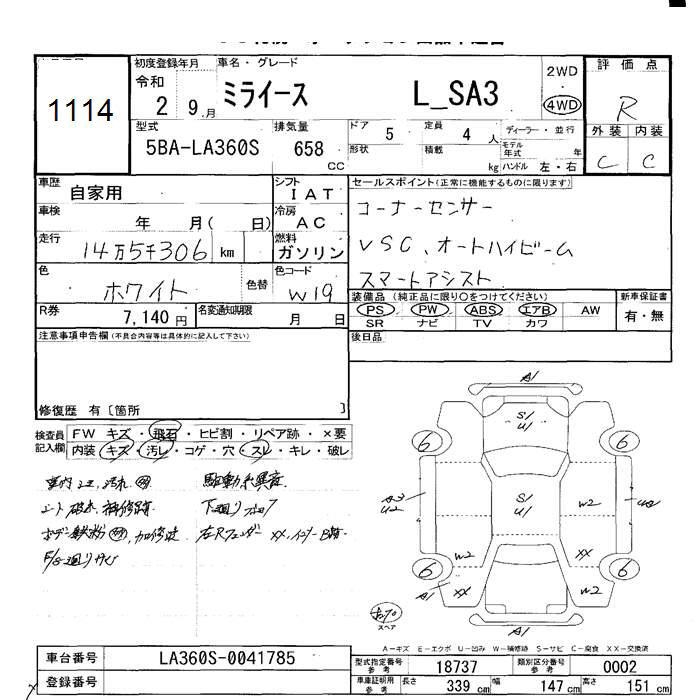 1114
初度登録年月
令和
2 9.月
車名・グレード
ミライース L_SA3
2WD
4WD
評価点
R
外装 内装
C C
型式
5BA-LA360S
排気量
658
CC
ドア 5
形状
定員 4 人
積載 kg
ディーラー・並行
モデル年式 年
ハンドル 左・右
車歴
自家用
シフト
IAT
車検
年 月( 日)
冷房
AC
走行
14万5千306 km
燃料
ガソリン
色
ホワイト
色替
色コード
W19
R券
7,140円
名変通知期限
月 日
セールスポイント(正常に機能するものに限ります)
コーナーセンサー
VSC、オートハイビーム
スマートアシスト
装備品(純正品に限り○をつけてください)
PS PW ABS エアB AW
SR ナビ TV カワ
新車保証書
有・無
後日品
注意事項申告欄(不具合内容等は具体的に記入して下さい)
修復歴 有〔箇所 〕
検査員
記入欄
FW キズ・飛石・ヒビ割・リペア跡・×要
内装 キズ・汚レ・コゲ・穴・スレ・キレ・破レ
駆動系異音
A1
S/
U/
6
6
A3
U2
S/
U/
W2
W2
XX
6
6
A1
XX
W2
A1
スペア
A-キズ E-エクボ U-凹み W-補修跡 S-サビ C-腐食 XX-交換済
車台番号
LA360S-0041785
登録番号
型式指定番号
参考
18737
類別区分番号
参考
0002
車庫証明用
参考
長さ 339 cm 幅 147 cm 高さ 151 cm